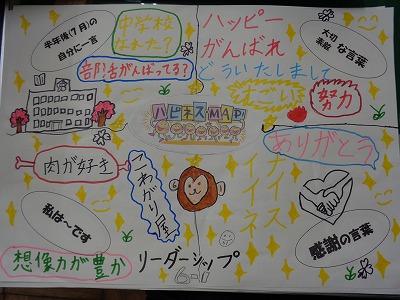 半年後(7月)の
自分に一言
中学校
なれた?
部活がんばってる?
ハッピー
がんばれ
どういたしまして
大切
素敵
な言葉
すごい!
努力
ハピネスMAP!
ありがとう
肉が好き
こわがり屋
ナイス
イイネ
私は~です
感謝の言葉
想像力が豊か
リーダーシップ
6-1